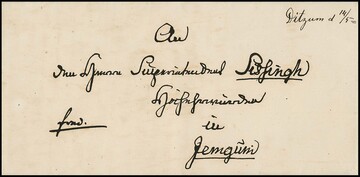 Ditzum d 14/5
An
den Herrn Superintendent Sissingh
Hochehrwürden
frco.
in
Jemgum